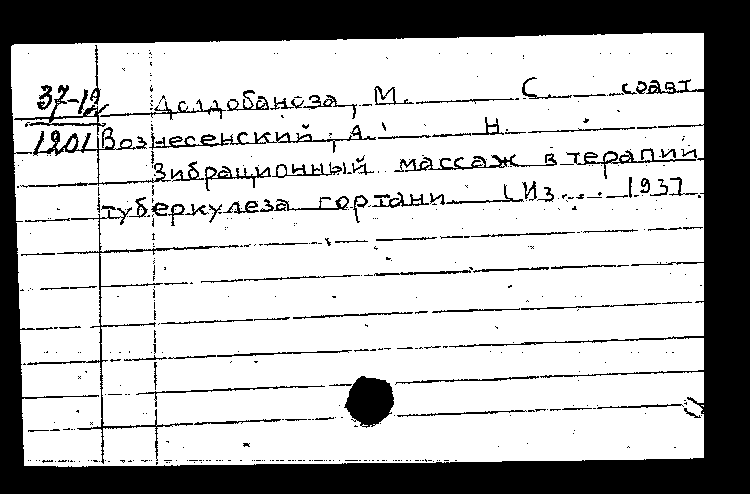 37-12 Долдобанова, М. С. соавт
1201 Вознесенский, А. Н.
Вибрационный массаж в терапии
туберкулеза гортани. (Из... 1937.